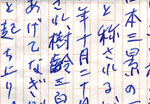 本三景の一
と称される
年十月二十
され樹齢三百
あげてなぎ
と起ち上り